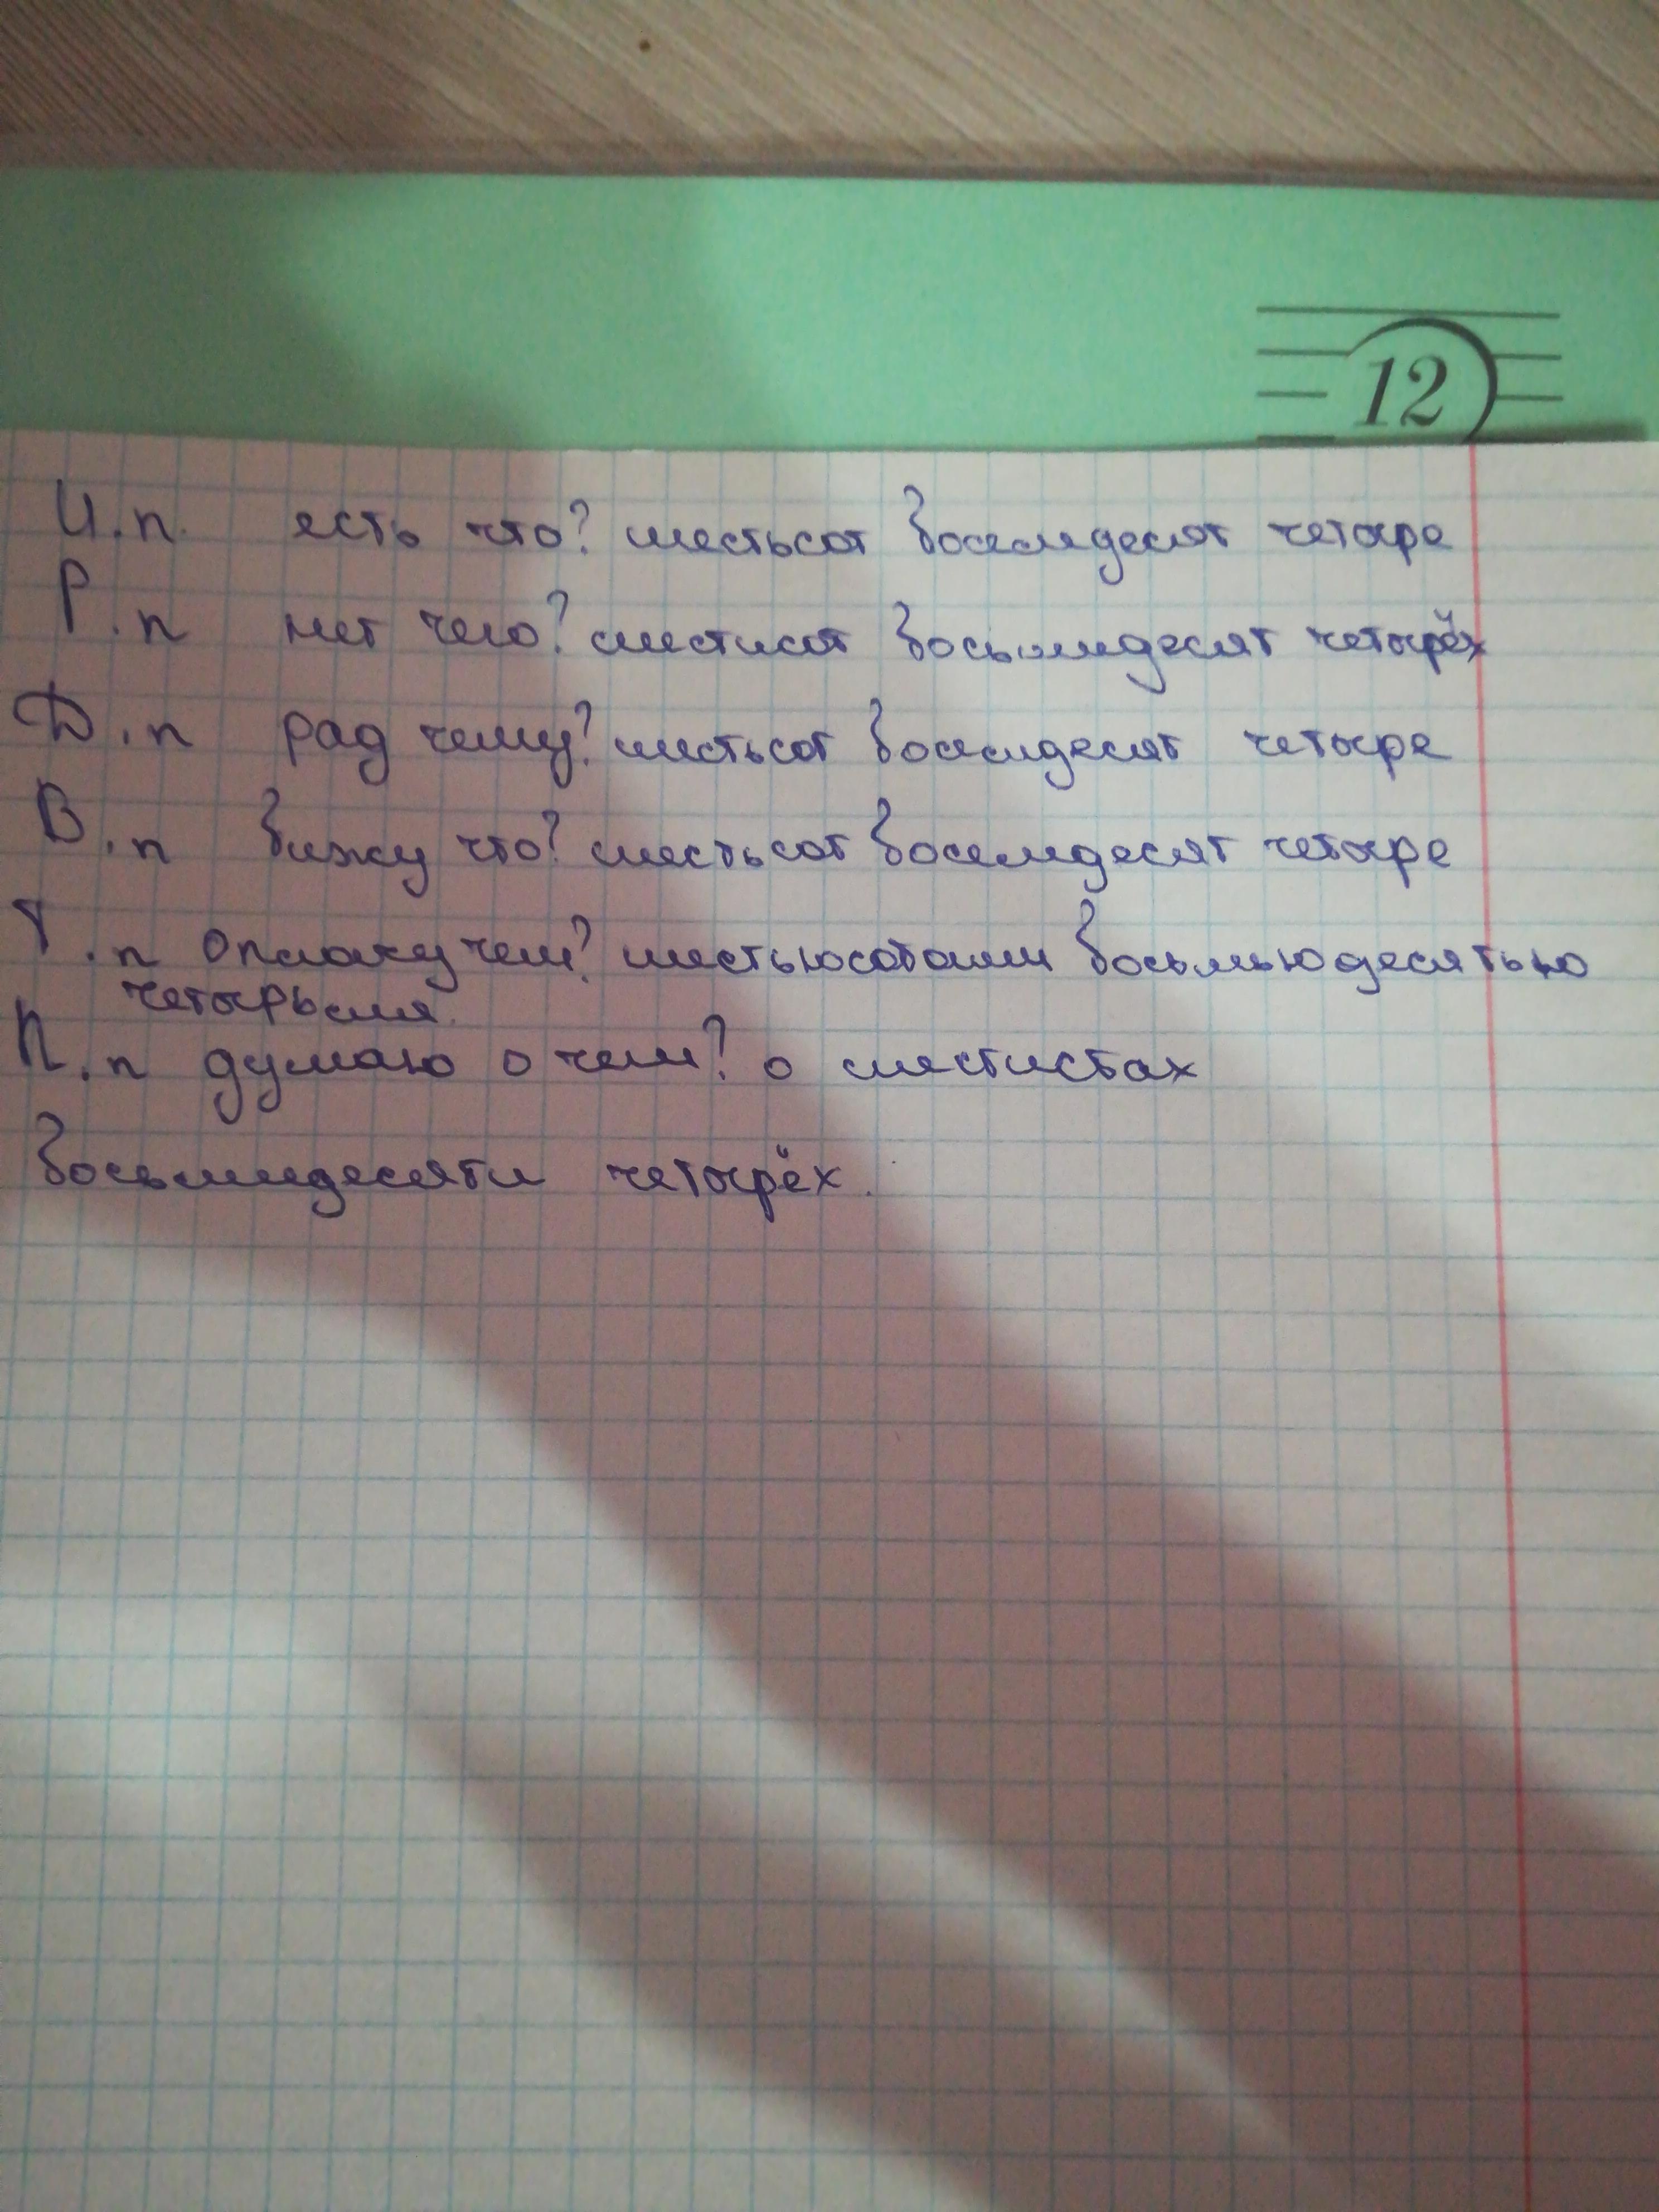 12
И.п. есть что? шестьсот восемдесят четыре
Р.п нет чего? шестисот восьмидесят четырёх
Д.п рад чему? шестьсот восемдесят четыре
В.п вижу что? шестьсот восемдесят четыре
Т.п чем? шестьюсотами восьмьюдесятью
четырьмя.
П.п думаю о чем? о шестистах
восьмидесяти четырёх.